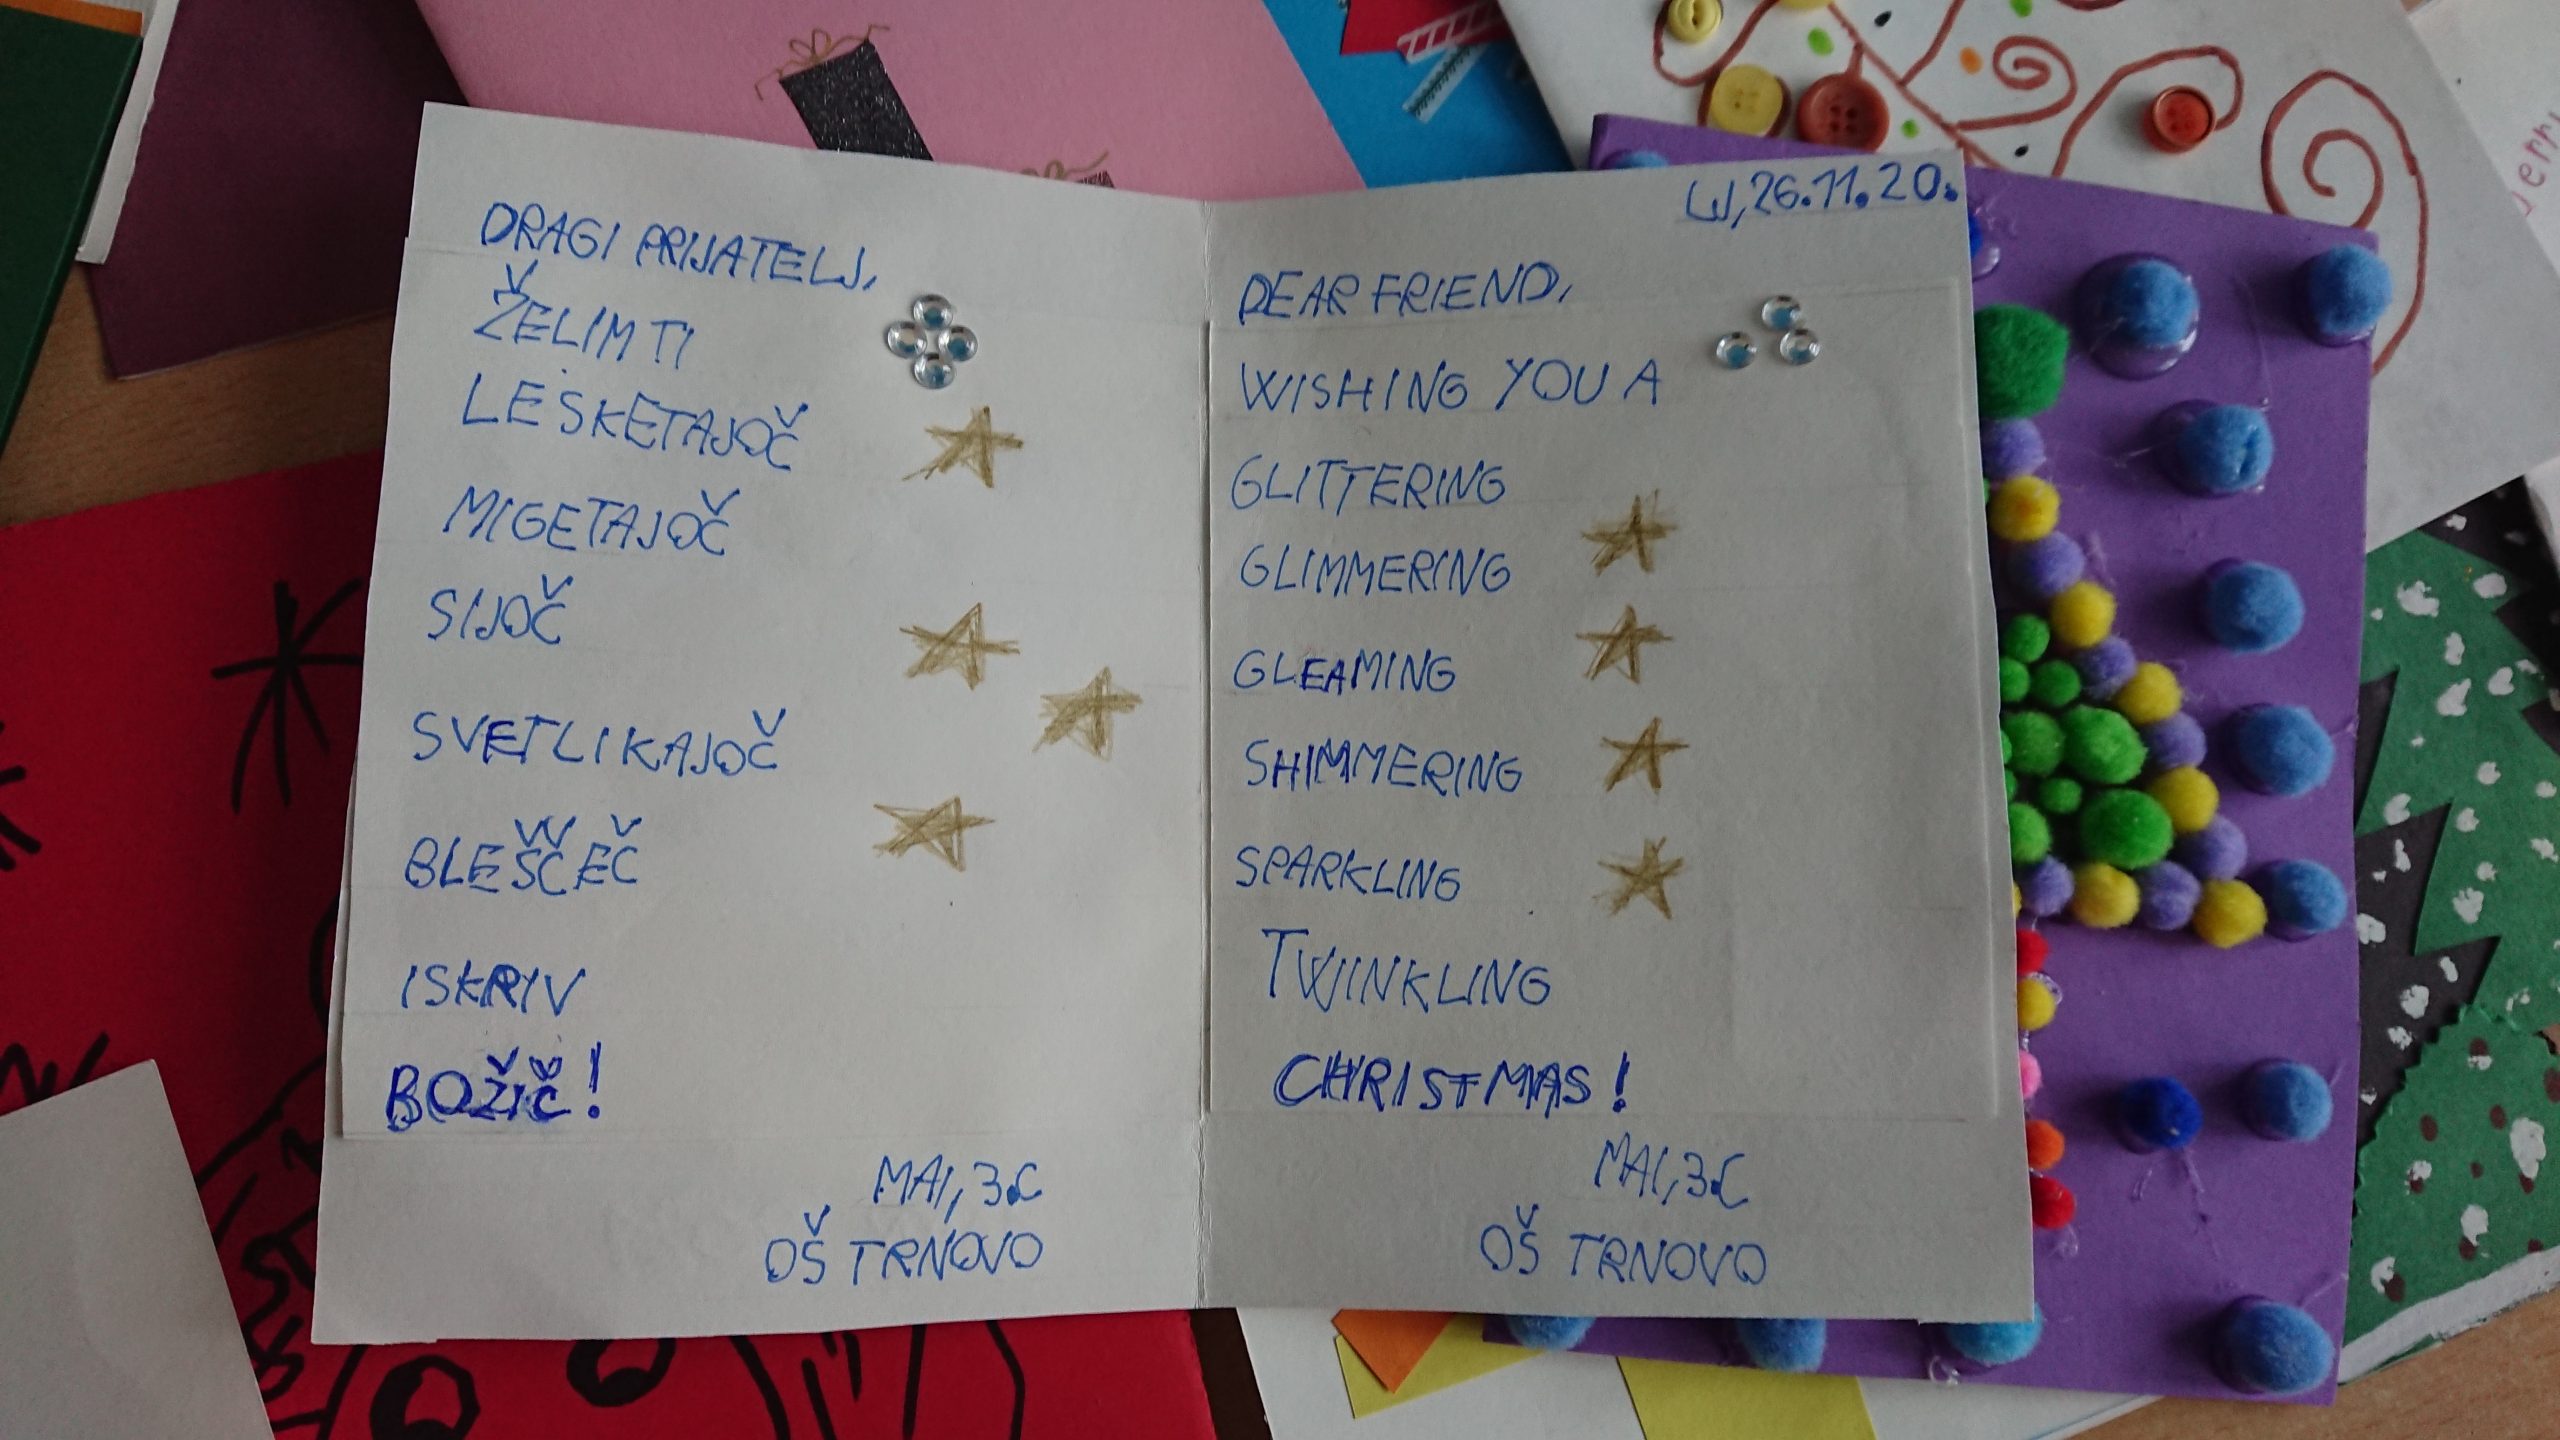 DRAGI PRIJATELJ,
ŽELIM TI
LESKETAJOČ
MIGETAJOČ
SIJOČ
SVETLIKAJOČ
BLEŠČEČ
ISKRIV
BOŽIČ!
MAI, 3.C
OŠ TRNOVO
LJ, 26.11.20.
DEAR FRIEND,
WISHING YOU A
GLITTERING
GLIMMERING
GLEAMING
SHIMMERING
SPARKLING
TWIINKLING
CHRISTMAS!
MAI, 3.C
OŠ TRNOVO